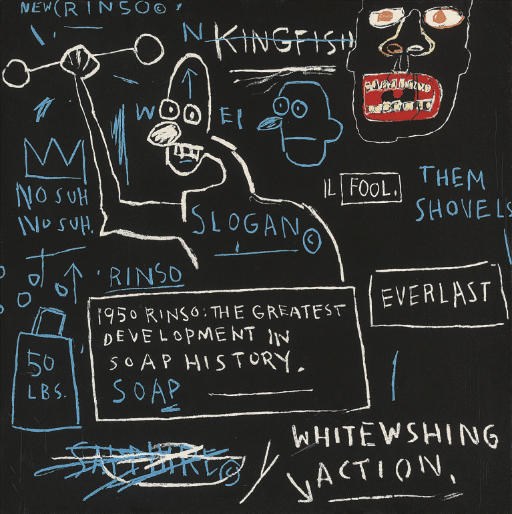 NEW(RINSO©)
N KINGFISH
W EI
IL FOOL.
THEM
SHOVELS
NO SUH
NO SUH.
SLOGAN©
RINSO
1950 RINSO: THE GREATEST
DEVELOPMENT IN
SOAP HISTORY.
SOAP
EVERLAST
50
LBS.
SAPPHIRE©
WHITEWSHING
ACTION.